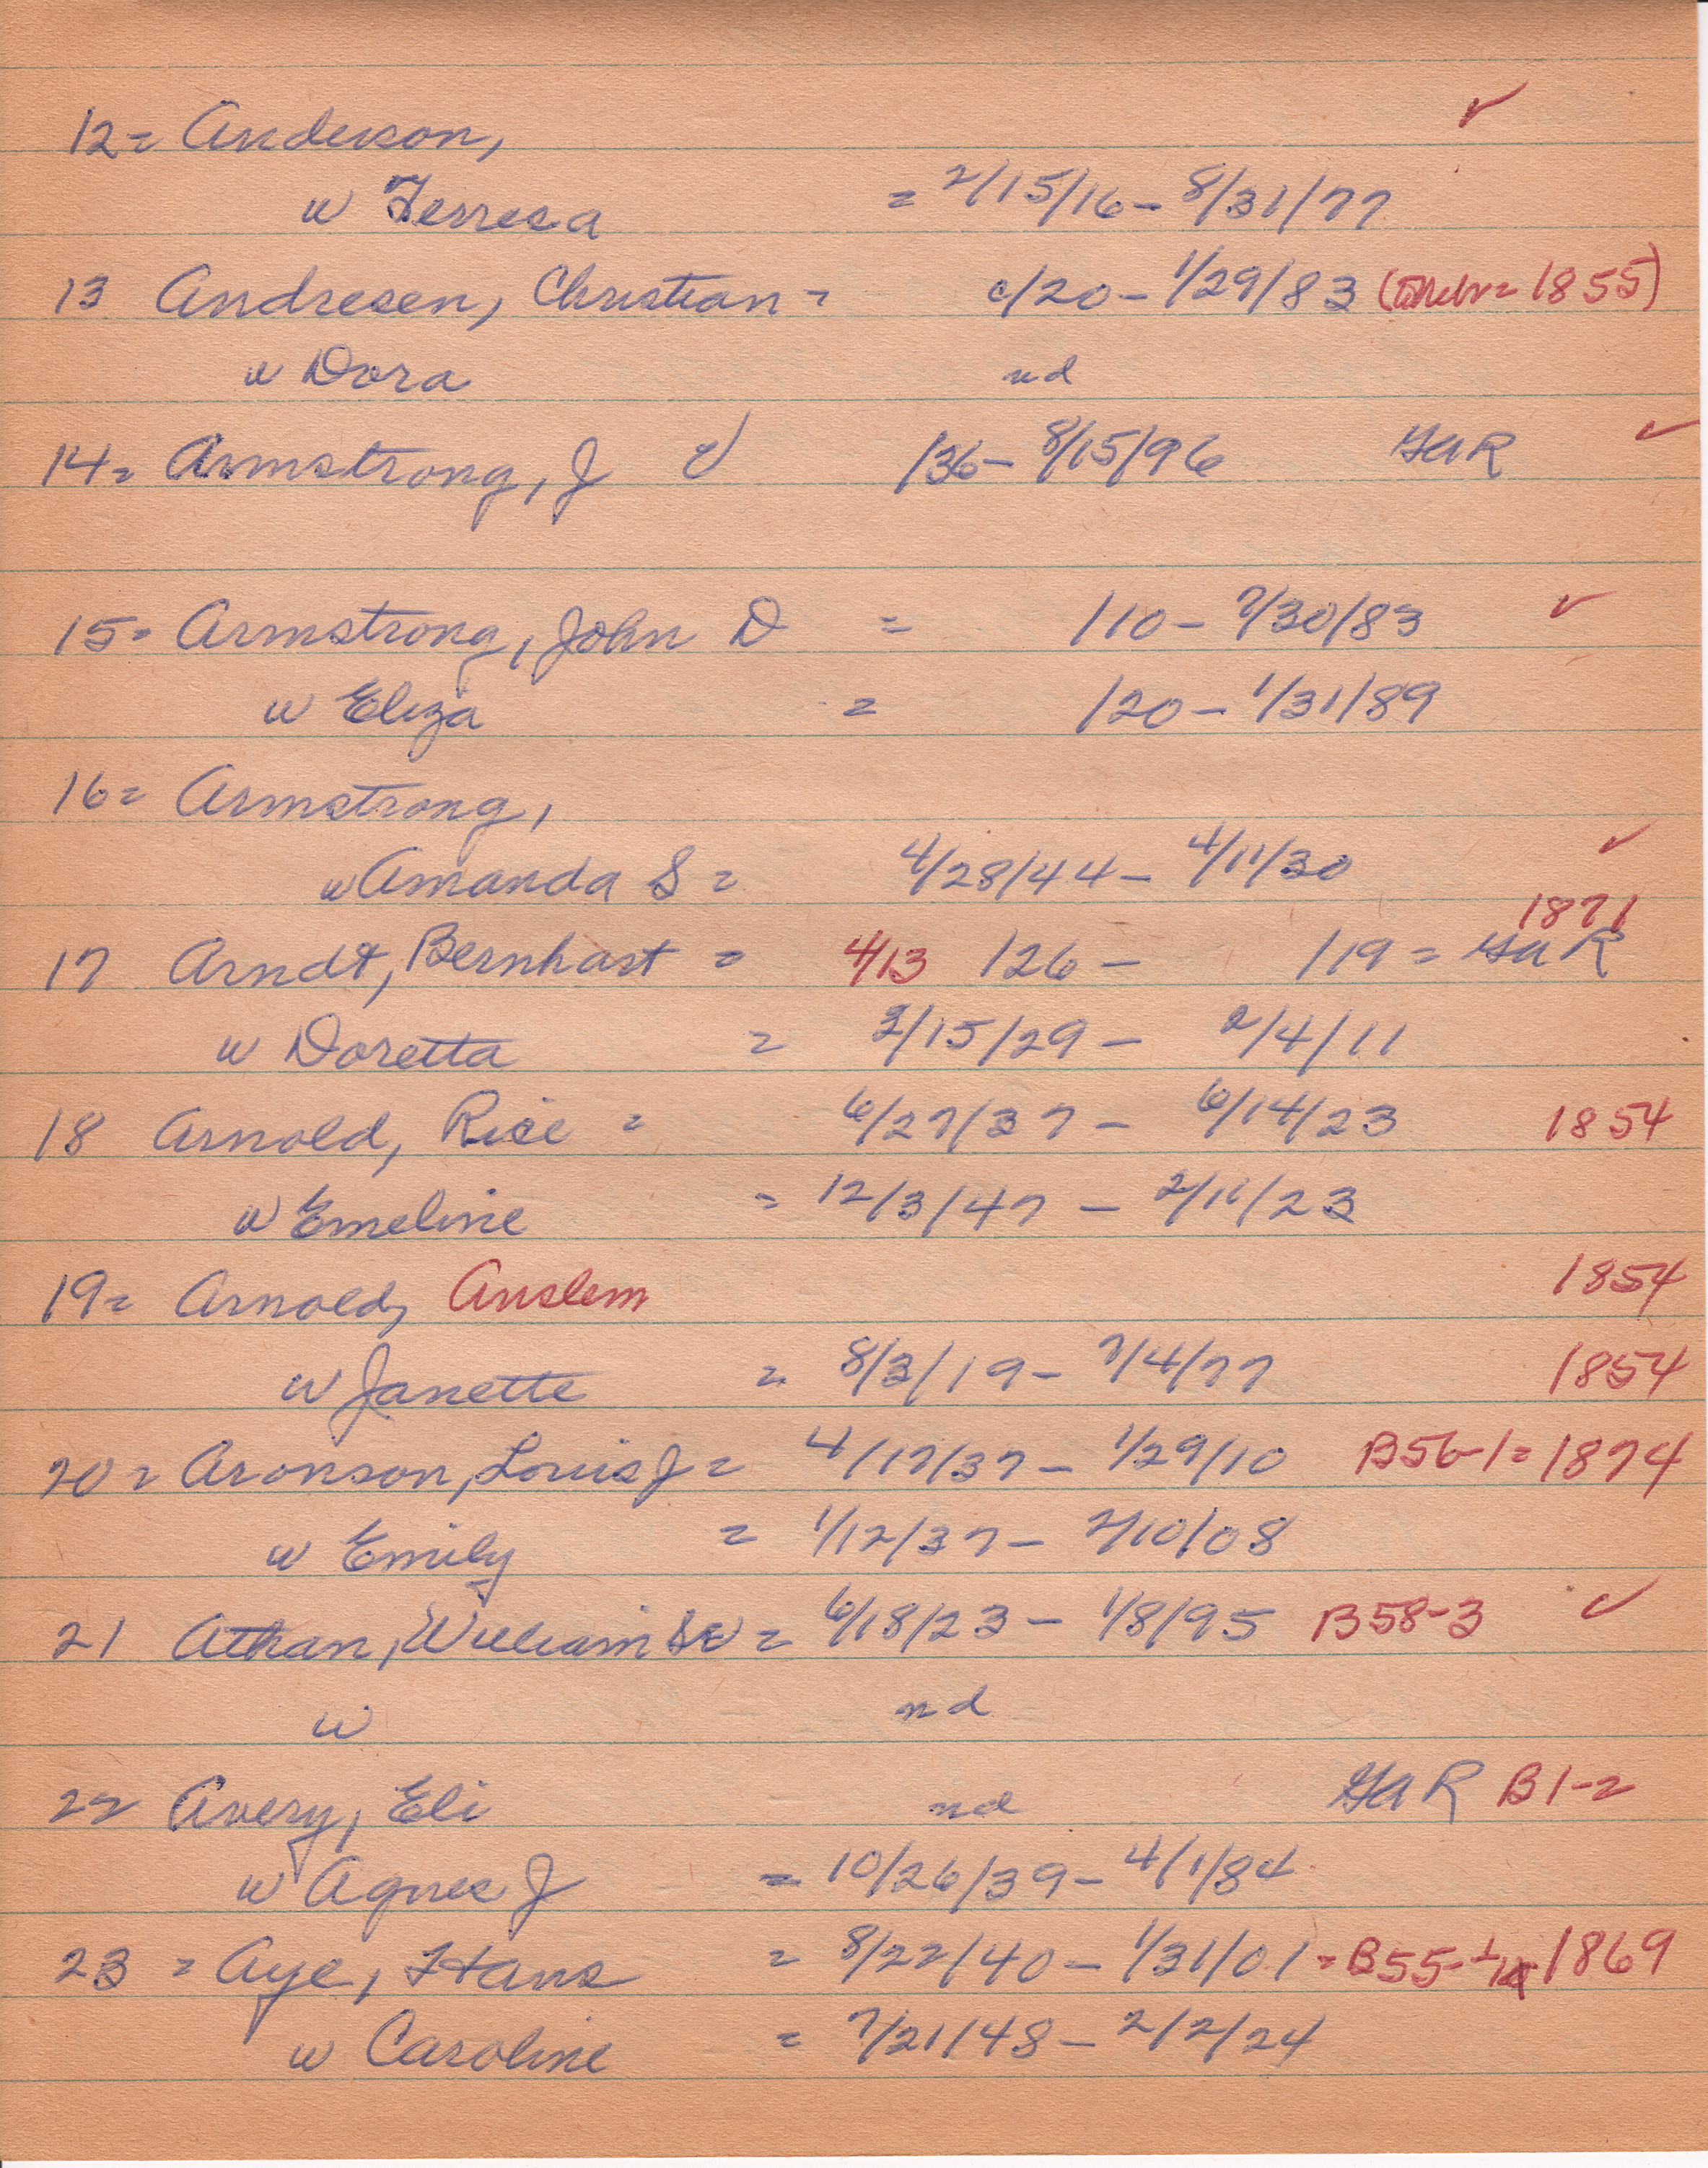 12= Anderson, ✓
w Terresa = 2/15/16 - 8/31/77
13 Andresen, Christian = c/20 - 1/29/83 ( = 1855)
w Dora nd
14= Armstrong, J /36 - 8/15/96 GAR ✓
15= Armstrong, John D = /10 - 7/30/83 ✓
w Eliza = /20 - 1/31/89
16= Armstrong,
w Amanda S = 4/28/44 - 4/11/30 ✓
1871
17 Arndt, Bernhart = 4/13 /26 - /19 = GAR
w Doretta = 3/15/29 - 2/4/11
18 Arnold, Rice = 6/27/37 - 6/14/23 1854
w Emeline = 12/3/47 - 2/11/23
19= Arnold, Anslem 1854
w Janette = 8/3/19 - 7/4/77 1854
20= Aronson, Louis J = 4/17/37 - 1/29/10 B56-1 = 1874
w Emily = 1/12/37 - 2/10/08
21 Athan, William = 6/18/23 - 1/8/95 B58-3 ✓
w nd
22 Avery, Eli nd GAR B1-2
w Agnes J = 10/26/39 - 4/1/84
23 = Aye, Hans = 8/22/40 - 1/31/01 = B55- 1869
w Caroline = 7/21/48 - 2/2/24